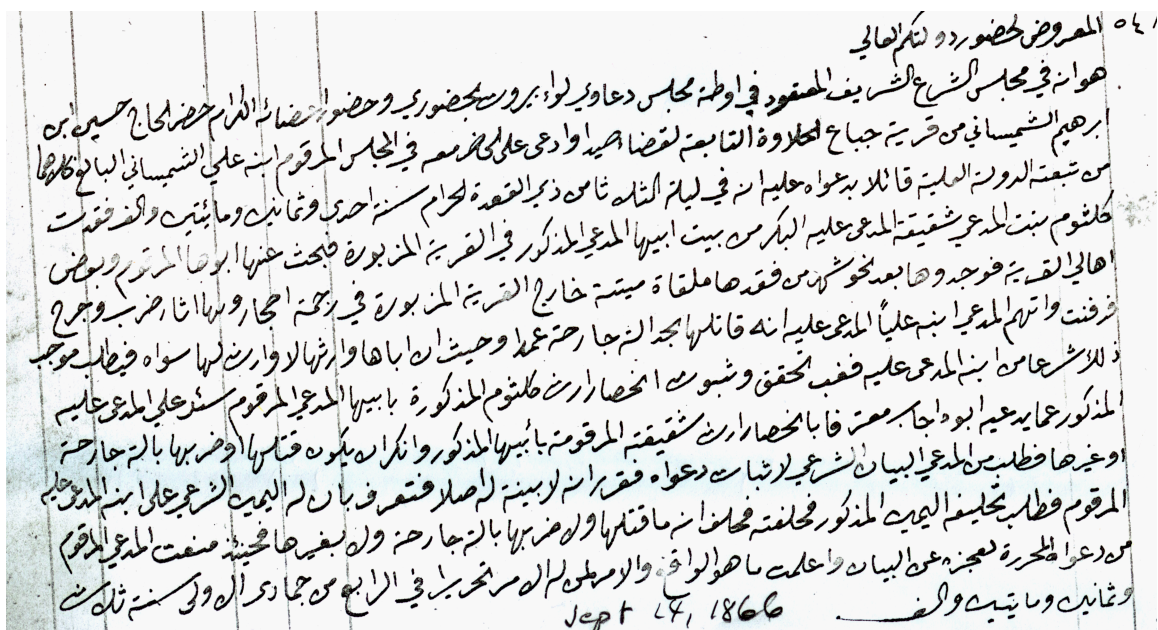 ٥٤١ المعروض لحضور دولتكم العالي
هو انه في مجلس الشرع الشريف المعقود في اوطة مجلس دعاوي لواء بيروت بحضوري وحضور اعضائه الكرام حضر الحاج حسين ابن
ابرهيم الشميساني من قرية جباع الحلاوة التابعة لقضا صيدا وادعى على الحاضر معه في المجلس المرقوم ابنه علي الشميساني البالغ كلاهما
من تبعته الدولة العلية قائلا بدعواه عليه انه في ليلة الثلث ثامن ذي القعدة الحرام سنة احدى وثمانين ومائتين والف فقدت
كلثوم بنت المدعي شقيقة المدعى عليه البكر من بيت ابيها المدعي المذكور في القرية المزبورة فبحث عنها ابوها المرقوم وبعض
اهالي القرية فوجدوها بعد نحو شهر من فقدها ملقاة ميتة خارج القرية المزبورة في رجمة احجار وبها اثار ضرب وجرح
فدفنت واتهم المدعي ابنه علياً المدعى عليه انه قاتلها بجد الة جارحة عمدا وحيث ان اباها وارثها لا وارث لها سواه فيطلب موجب
ذلك شرعا من ابنه المدعى عليه فغب التحقق وثبوت انحصار ارث كلثوم المذكورة بابيها المدعي المرقوم سئل علي المدعى عليه
المذكور عما يدعيه ابوه اجاب معترفا بانحصار ارث شقيقته المرقومة بأبيها المذكور وانكر ان يكون قتلها او ضربها بالة جارحة
او غيرها فطلب من المدعي البيان الشرعي لاثبات دعواه فقرر انه لا بينة له اصلا فتعرف بان له اليمين الشرعي على ابنه المدعى عليه
المرقوم فطلب تحليفه اليمين المذكور فحلفته فحلف انه ما قتلها ولا ضربها بالة جارحة ولا بغيرها فحينئذ منعت المدعي المرقوم
من دعواه المحررة لعجزه عن البيان واعلمت ما هو الواقع والامر لمن له الامر تحريرا في الرابع من جمادى الاولى سنة ثلاث
وثمانين ومايتين والف
Sept 14, 1866